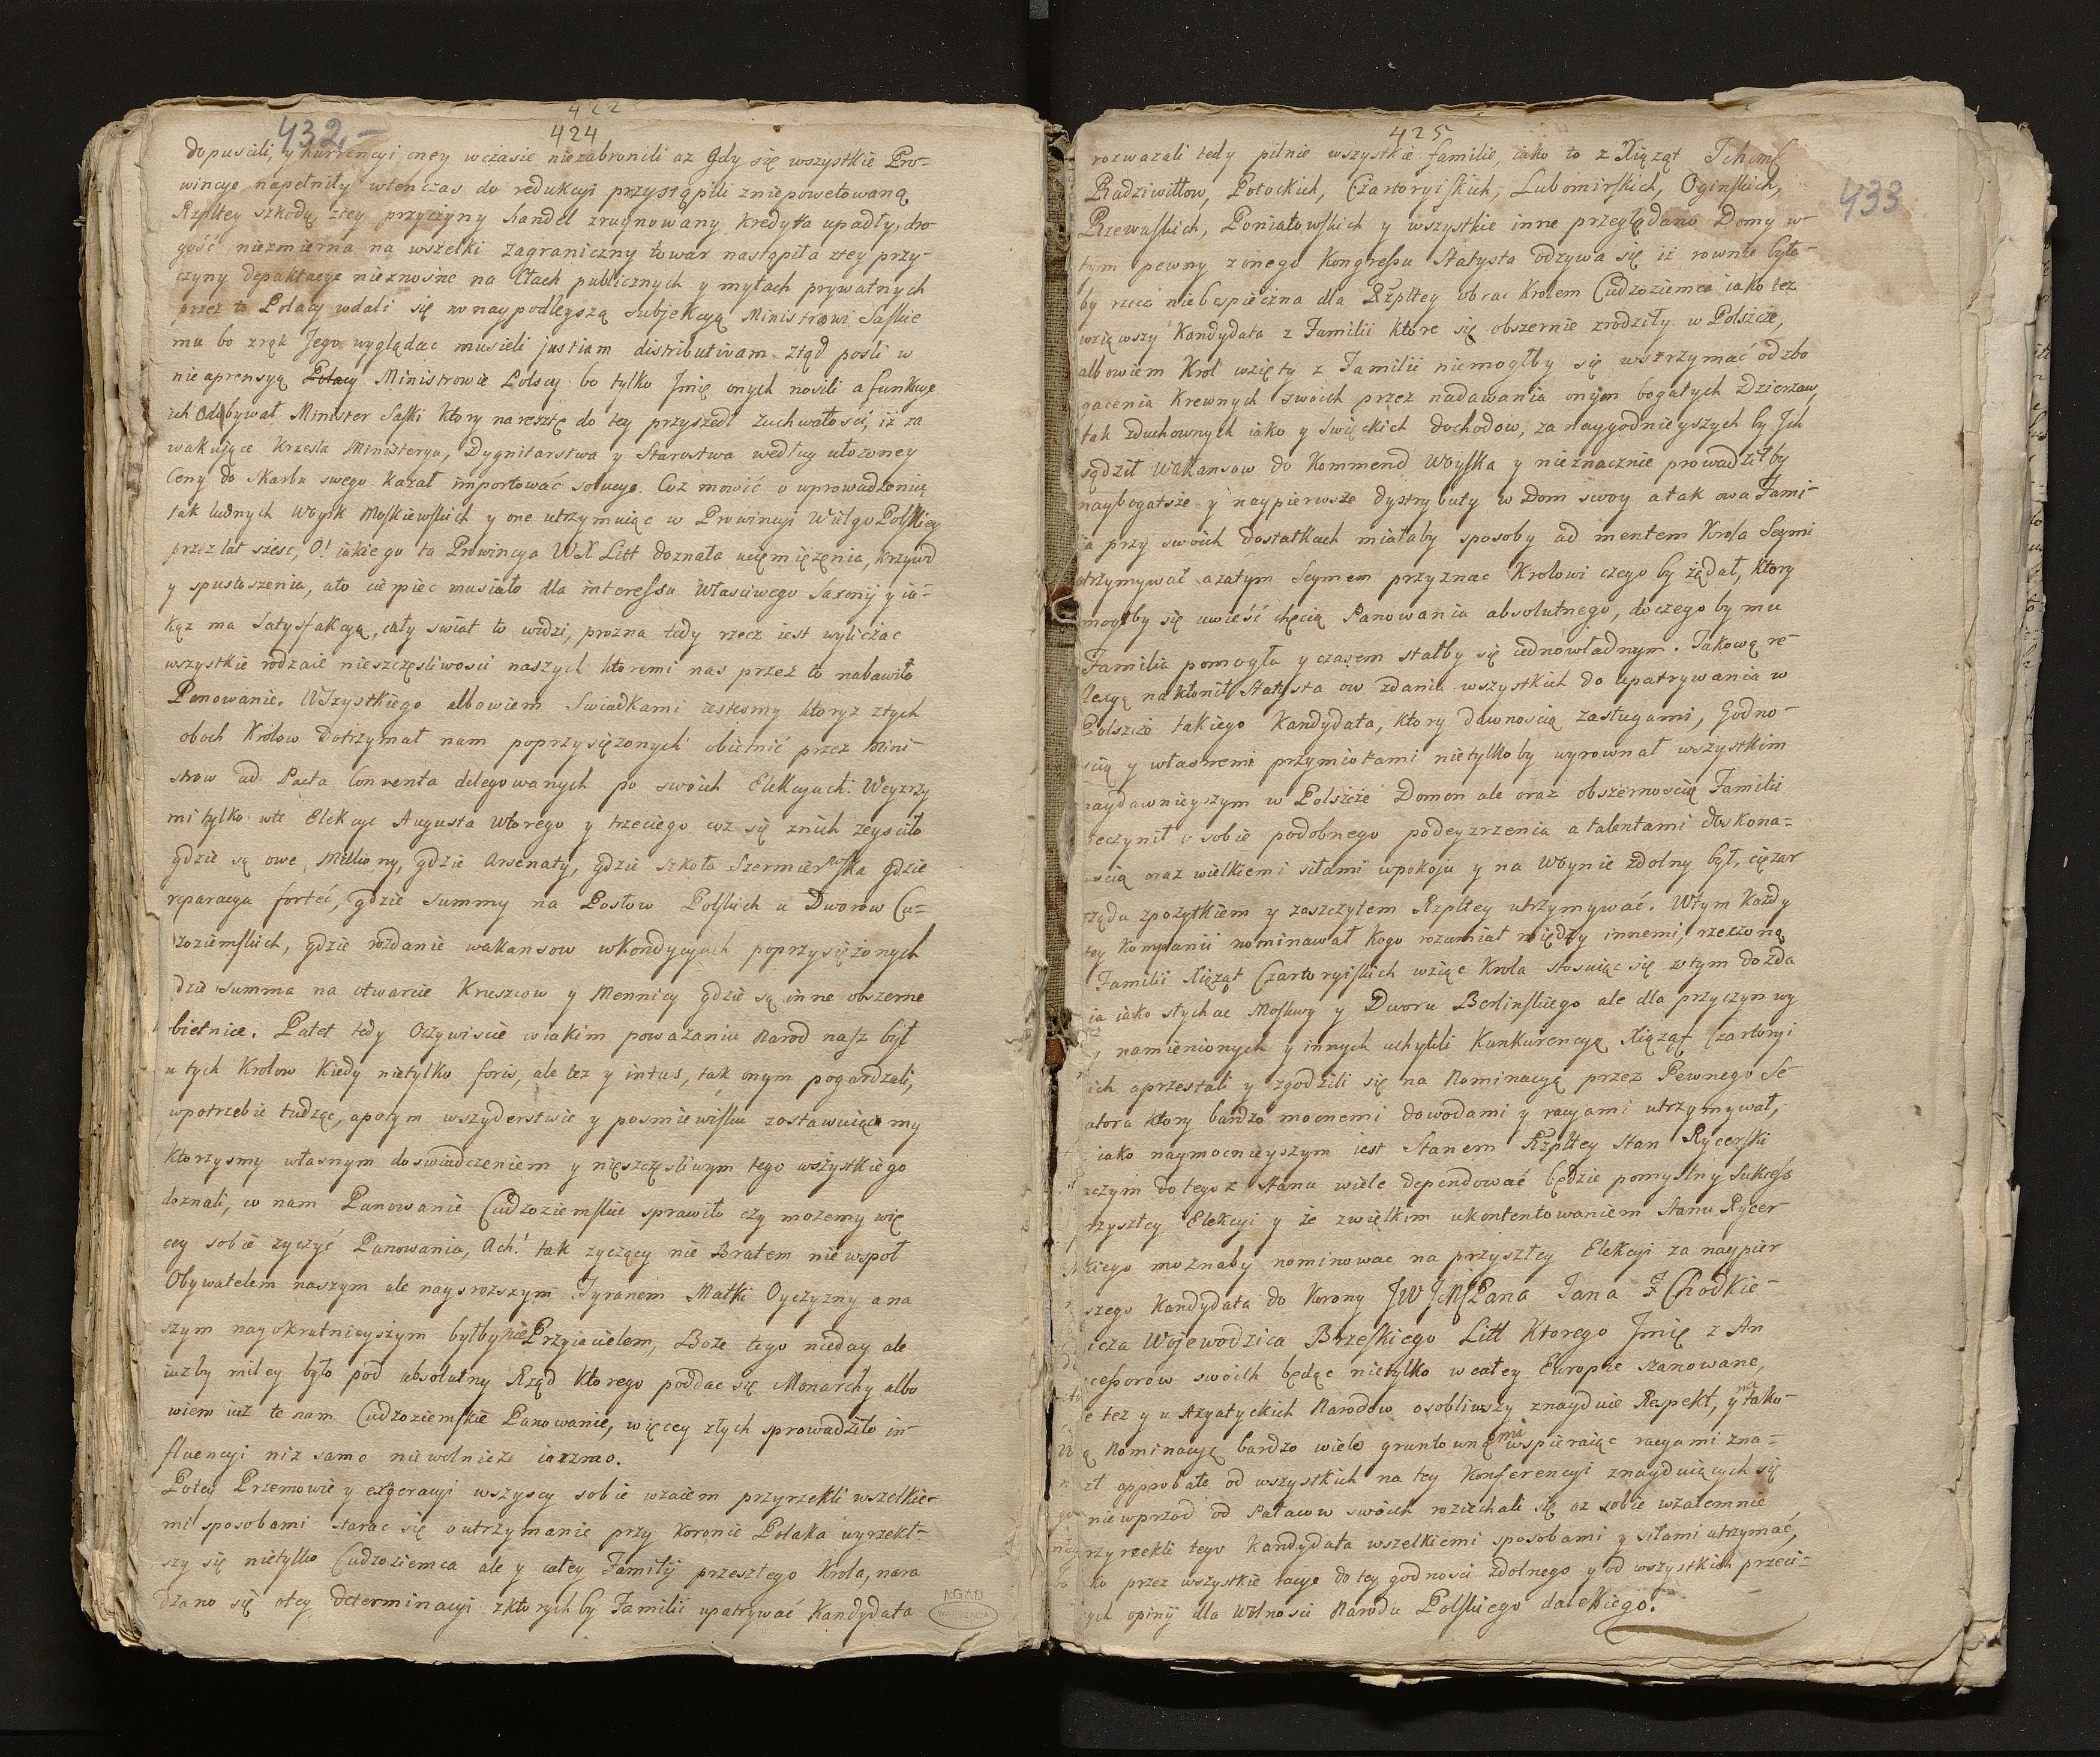 422
432
424
dopuscili, y kurrencyi oney wczasie niezabronili az gdy się wszystkie Pro-
wincye napełniły wtenczas do redukcyi przystąpili zniepowetowaną
Rzpltey szkodą, ztey przyczyny handel zruynowany kredyta upadły, dro-
gość niezmierna na wszelki zagraniczny towar nastąpiła ztey przy-
czyny depaktacye nieznośne na Cłach publicznych y mytach prywatnych
przez to Polacy wdali się w naypodleyszą subjekcyą Ministrowi Saskie
mu bo zrąk Jego wyglądac musieli justiam distributivam ztąd posli w
nieaprensyą Polacy Ministrowie Polscy bo tylko Jmię onych nosili a funkcye
ich odbywał Minister Saski ktory nareszte do tey przyszedł zuchwałosci, iż za
wakuiące krzesła Ministerya, Dygnitarstwa y Starostwa według ułozoney
Ceny do Skarbu swego kazał importować solucye. Coz mowić o wprowadzeniu
tak ludnych Woysk Moskiewskich y one utrzymuiąc w Prowincyi Wielgo Polskiey
przez lat szesc, O! iakiego ta Prowincya WX Litt doznała uciemięzenia, krzywd
y spustoszenia, ato cierpiec musiało dla interessu Własciwego Saxonij y ia-
kąz ma Satysfakcyą, cały swiat to widzi, prozna tedy rzecz iest wyliczac
wszystkie rodzaie nieszczęsliwosci naszych ktoremi nas przez to nabawiło
Panowanie. Wszystkiego albowiem Swiadkami iestesmy ktoryz ztych
oboch Krolow Dotrzymał nam poprzysięzonych obietnic przez Mini-
strow ad Pacta Conventa delegowanych po swoich Elekcyach. Weyzrzy
mi tylko wte Elekcye Augusta Wtorego y trzeciego coz się znich zeysciło
gdzie są owe Milliony, gdzie Arsenały, gdzie szkoła Szermierska gdzie
reparacya fortec, gdzie Summy na Posłow Polskich u Dworow Cu-
zoziemskich, gdzie rozdanie wakansow wkondycyach poprzysięzonych
dzie Summa na otwarcie Kruszcow y Mennicy gdzie są inne obszerne
bietnice. Patet tedy oczywiscie wiakim powazaniu Narod nasz był
u tych Krolow kiedy nietylko foris, ale tez y intus, tak onym pogardzali,
wpotrzebie łudząc, apotym wszyderstwie y posmiewisku zostawuiąc my
ktorzysmy własnym doswiadczeniem y nieszczęsliwym tego wszystkiego
doznali, co nam Panowanie Cudzoziemskie sprawiło czy mozemy wię
cey sobie zyczyć Panowania, Ach! tak zyczący nie Bratem nie wspoł
Obywatelem naszym ale naysrozszym Tyranem Matki Oyczyzny a na
szym nayokrutnieyszym byłby nie Przyiacielem, Boze tego nieday ale
iuzby miley było pod absolutny Rząd ktorego poddac się Monarchy albo
wiem iuz te nam Cudzoziemskie Panowanie, więcey złych sprowadziło in-
fluencyi niz samo niewolnicze iarzmo.
Potey Przemowie y exgeracyi wszyscy sobie wzaiem przyrzekli wszelkie-
mi sposobami starac się outrzymanie przy koronie Polaka wyrzekł-
szy się nietylko Cudzoziemca ale y całey Familij przeszłego Krola, nara
dzano się otey determinacyi zktorych by Familii upatrywać Kandydata
AGAD
WARSZAWA
425
433
rozwazali tedy pilnie wszystkie familie, iako to z Xiąząt Jchmś
Radziwiłłow, Potockich, Czartoryiskich, Lubomirskich, Oginskich,
Rzewuskich, Poniatowskich y wszystkie inne przeglądano Domy w-
tym pewny zonego Kongressu Statysta odzywa się iz rownie było
by rzecz niebespieczna dla Rzpltey obrac Krolem Cudzoziemca iako tez
wziąwszy Kandydata z Familii ktore się obszernie zrodziły w Polszcze,
albowiem Krol wzięty z Familii niemogłby się wstrzymać odzbo
gacenia Krewnych swoich przez nadawania onym bogatych Dzierzaw,
tak zduchownych iako y Swieckich dochodow, za naygodnieyszych by Jch
sądził Wakansow do Kommend Woyska y nieznacznie prowadziłby
naybogatsze y naypierwsze dystrybuty w Dom swoy a tak owa Fami-
ia przy swoich dostatkach miałaby sposoby ad mentem Krola Seymi
trzymywać azatym Seymem przyznac Krolowi czego by żądał, ktory
mogłby się uwieść chęcią Panowania absolutnego, doczego by mu
Familia pomogła y czasem stałby się iednowładnym. Takową re-
lexyą nakłonił Statysta ow zdania wszystkich do upatrywania w
Polszcze takiego Kandydata, ktory dawnoscią zasługami, Godno-
scią y własnemi przymiotami nietylkoby wyrownał wszystkim
naydawnieyszym w Polszcze Domom ale oraz obszernoscią Familii
ieczynił o sobie podobnego podeyzrzenia a talentami doskona-
scią oraz wielkiemi siłami wpokoju y na Woynie zdolny był, cięzar
rządu zpozytkiem y zaszczytem Rzpltey utrzymywać. Wtym kazdy
tey Kompanii nominawał kogo rozumiał między innemi, rzeczoną
Familii Xiąząt Czartoryiskich wziąc Krola stosuiąc się wtym dozda
ia iako słychac Moskwy y Dworu Berlinskiego ale dla przyczyn wy
y namienionych y innych uchylili Kunkurencyą Xiąząt Czartoryi
ich aprzestali y zgodzili się na Nominacyą przez Pewnego Se
atora ktory bardzo mocnemi dowodami y racyami utrzymywał,
iako naymocnieyszym iest Stanem Rzpltey Stan Rycerski
rzezym do tegoz Stanu wiele dependować będzie pomyslny Sukcess
rzyszłey Elekcyi y ze zwielkim ukontentowaniem Stanu Rycer
kiego moznaby nominowac na przyszłey Elekcyi za naypier
szego Kandydata do Korony JWJmsPana Jana F Chodkie-
icza Wojewodzica Brzeskiego Litt ktorego Jmię z An
cessorow swoich będąc nietylko w całey Europie szanowane,
e tez y u Azyatyckich Narodow osobliwszy znayduie Respekt, y na tako-
ą Nominacyą bardzo wielo gruntownemi wspieraiąc racyami zna-
zł approbatę od wszystkich na tey Konferencyi znayduiących się
nie wprzod od Pałacow swoich roziechali się az sobie wzaiemnie
rzyrzekli tego Kandydata wszelkiemi sposobami y siłami utrzymać,
ko przez wszystkie racye do tey godnosci zdolnego y od wszystkich przeci-
ych opinij dla Wolnosci Narodu Polskiego dalekiego.